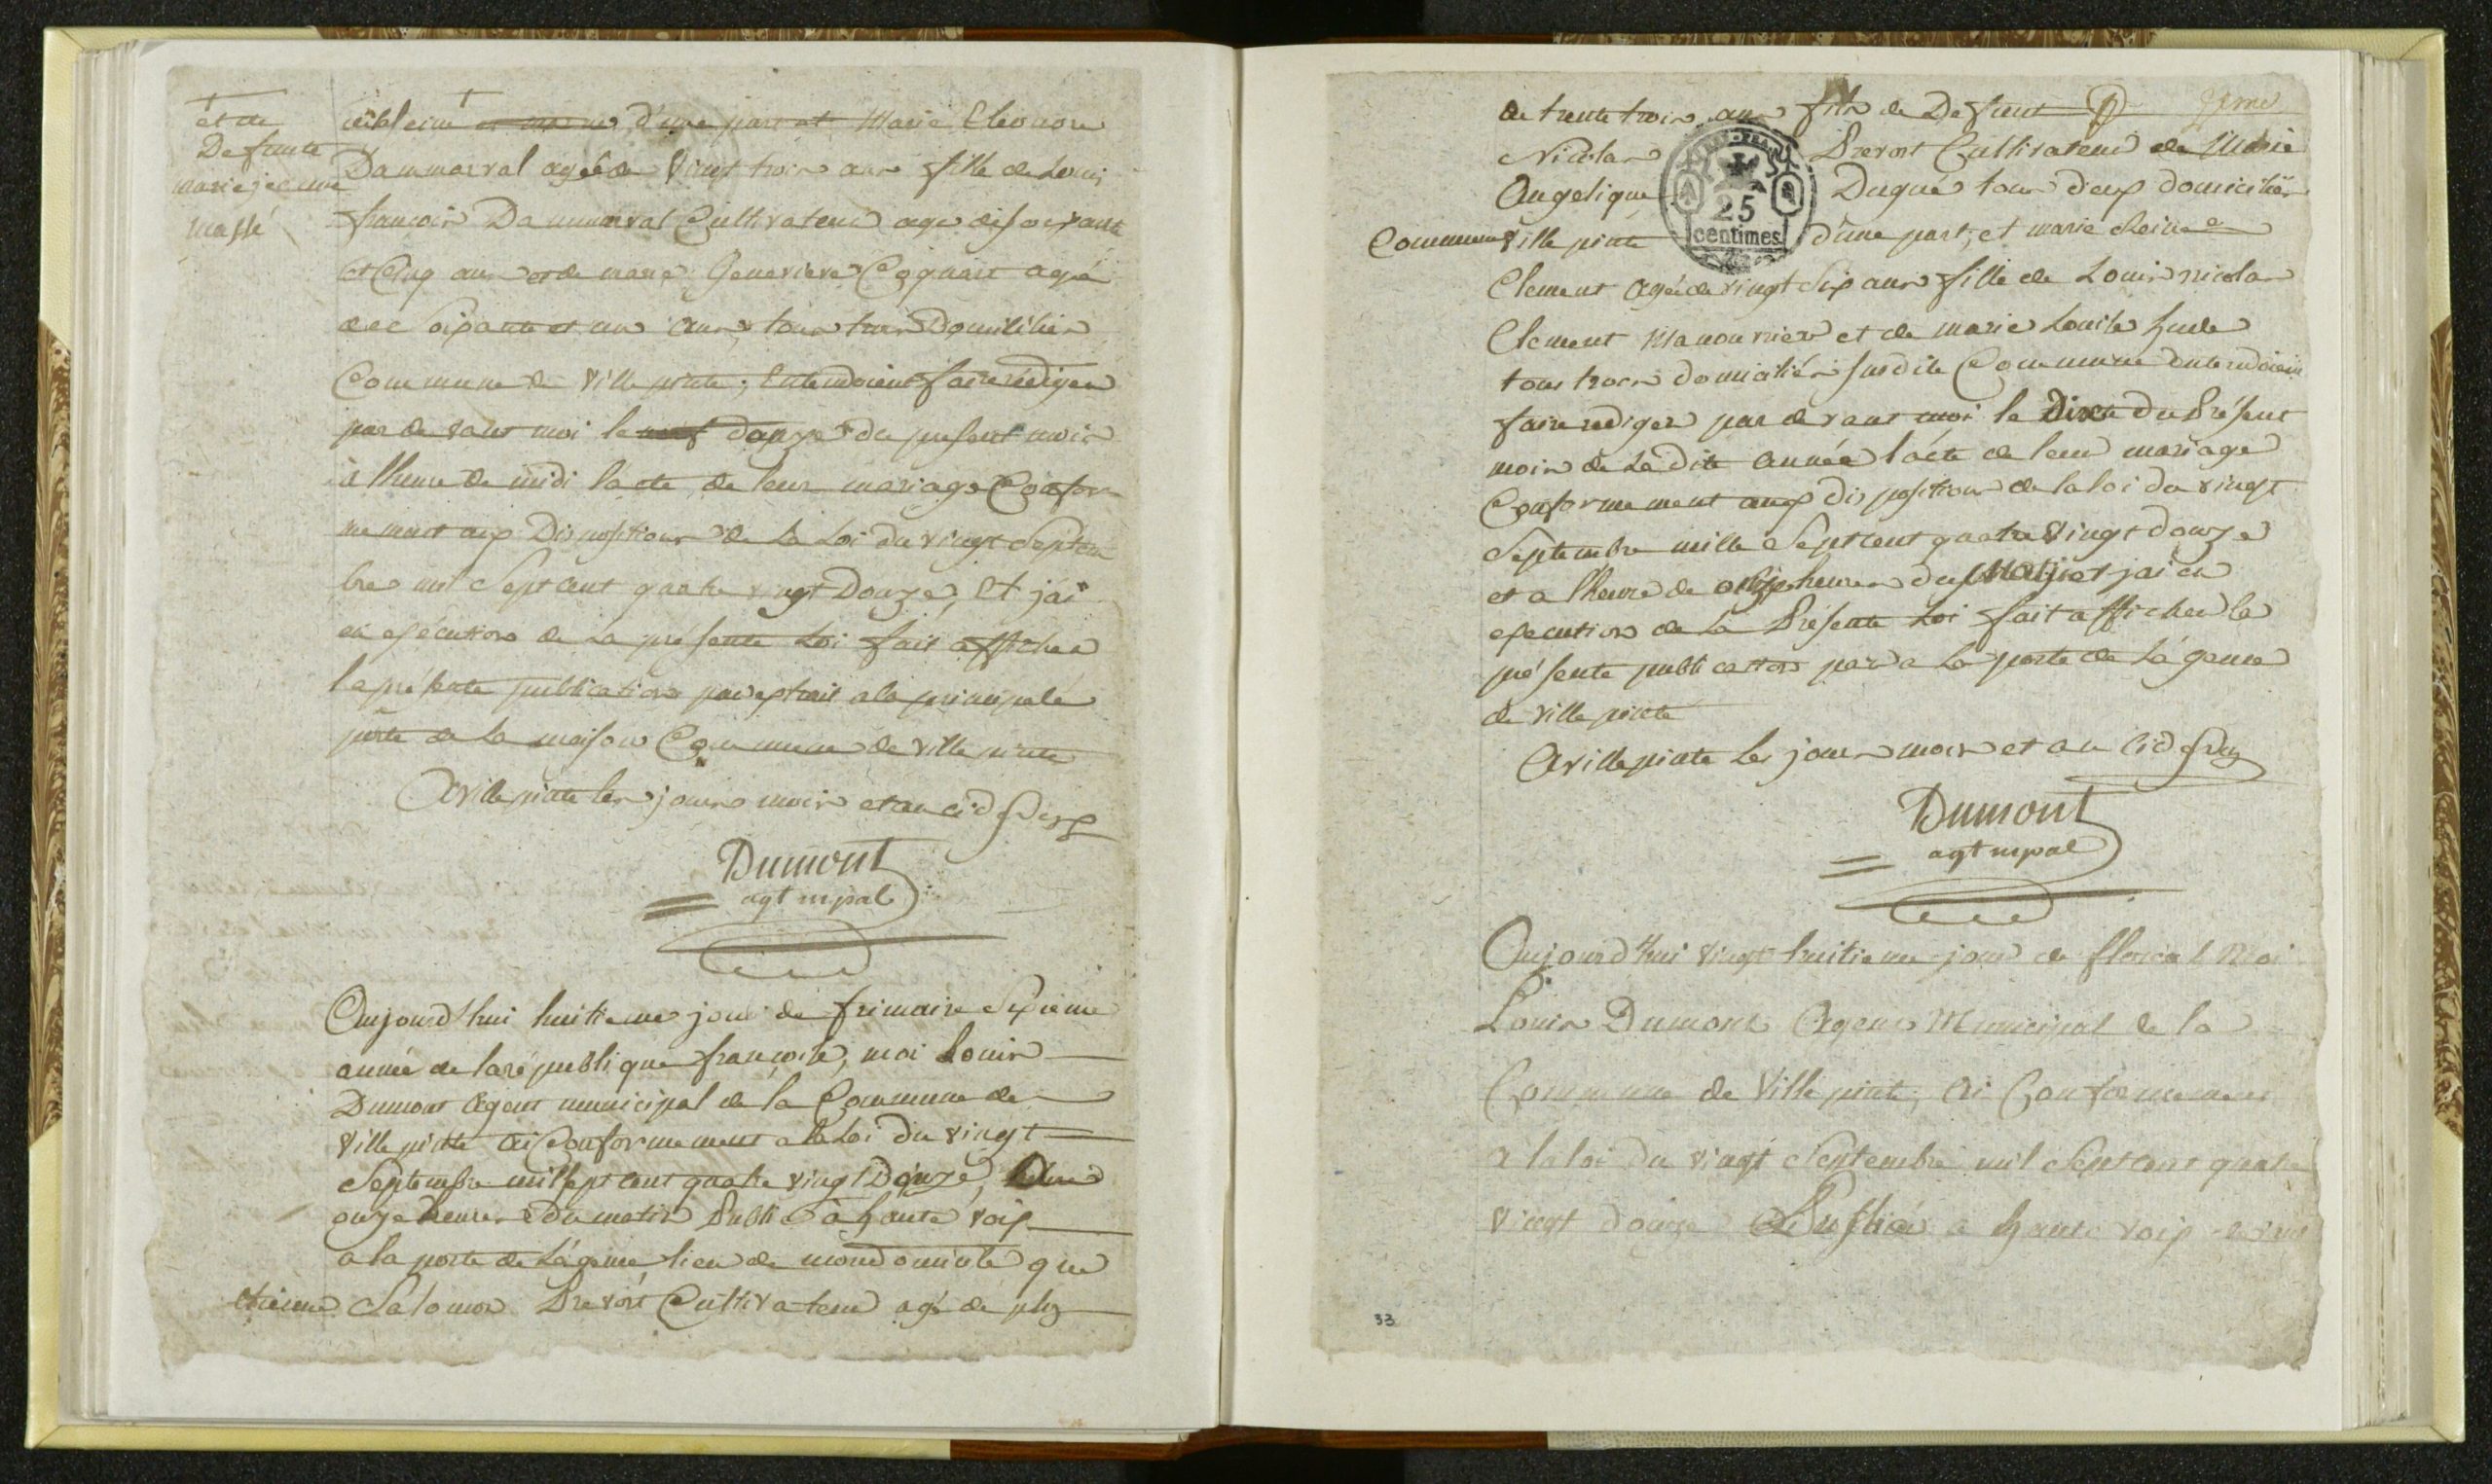 et de
Defunte
marie jeanne
massé
d'une part et Marie Eleonore
Dammarval agée de vingt trois ans fille de Louis
francois Dammarval Cultivateur age de soixante
et Cinq ans et de marie Genevieve Coquart agé
de Soixante et un ans tous trois Domiciliés
Commune de Ville pinte; Entendoient faire rédiger
par devant moi le neuf douze du present mois
à lheure de midi lacte de leur mariage Confor-
mement aux Dispositions de La Loi du vingt Septem
bre mil Sept cent quatre vingt Douze, Et j'ai
en exécution de La présente Loi fait afficher
la présente publication par extrait a la principale
porte de La maison Commune de Ville pinte
A Ville pinte les jours mois et an cid
Dumont
agt mpal
Aujourd'hui huitieme jour de frimaire Sixieme
année de la république françoise, moi Louis
Dumont Agent municipal de la Commune de
Ville pinte ai Conformement a la Loi du vingt
Septembre mil sept cent quatre vingt Douze,
onze heures du matin Publié à haute voix
a la porte de Lágence lieu de mon domicile que
etienne Salomon Prevost Cultivateur agé de plus
de trente trois ans fils de Defunt
Nicolas Prevost Cultivateur de Marie
Angelique Dugué tous deux domiciliés
Commune Ville pinte d'une part, et marie Reine
Clement Agée de vingt Six ans fille de Louis nicolas
Clement Manouvrier et de marie Louise
tous trois domiciliés susdite Commune entendoient
faire rediger par devant moi le Dix du Présent
mois de La Dite année lacte de leur mariage
Conformement aux dispositions de la loi du vingt
Septembre mille Sept cent quatre Vingt douze
et a lheure de onze heures du et jai en
execution de La Présente Loi fait afficher la
présente publication par a La porte de Lágence
de Ville pinte
A Ville pinte Les jours mois et an cid
Dumont
agt mpal
Aujourd'hui Vingt huitieme jour de floréal Moi
Louis Dumont Agent Municipal de la
Commune de Ville pinte, ai Conformement
a la loi du vingt Septembre mil Sept cent quatre
vingt douze Publié a haute voix
25
centimes
33